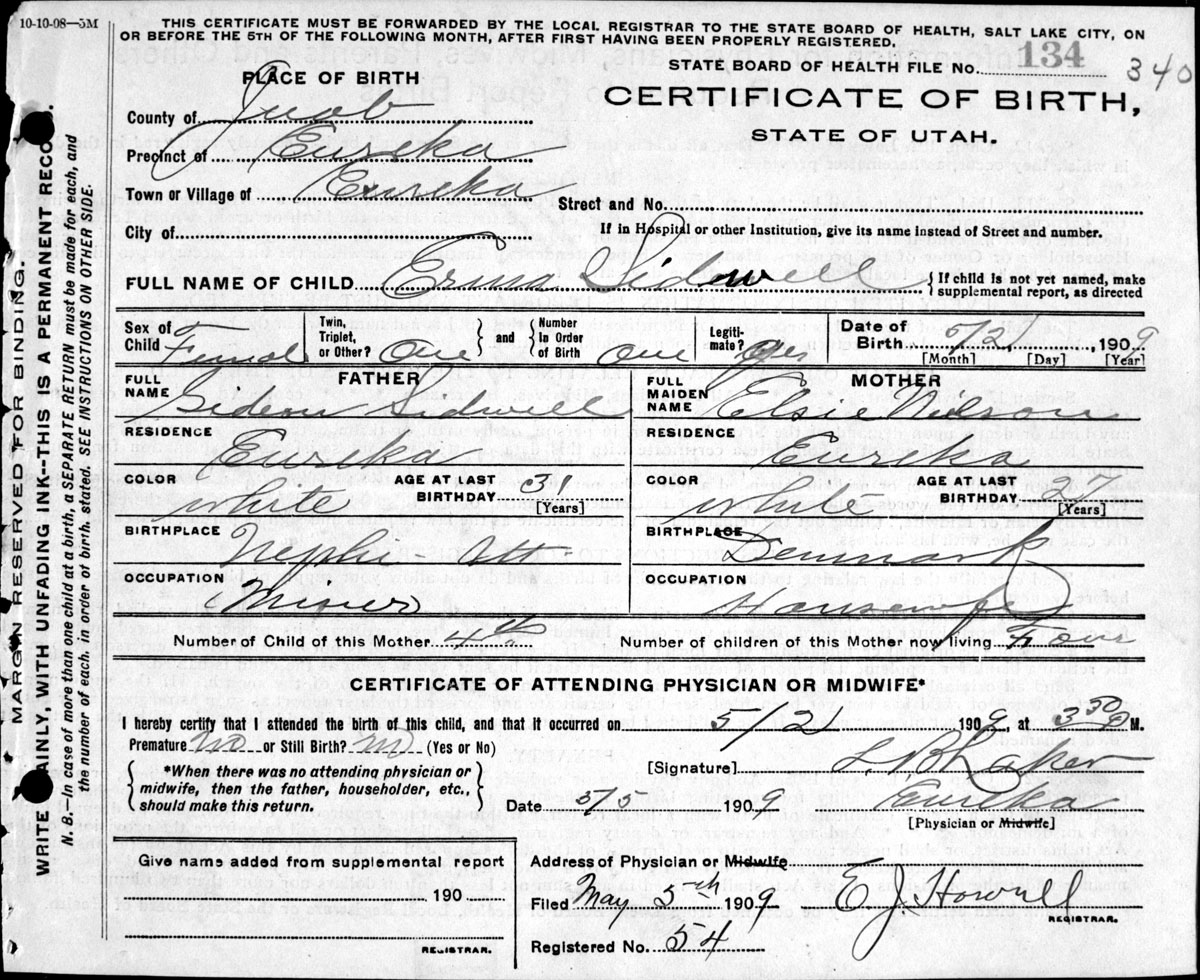 10-10-08—5M
THIS CERTIFICATE MUST BE FORWARDED BY THE LOCAL REGISTRAR TO THE STATE BOARD OF HEALTH, SALT LAKE CITY, ON
OR BEFORE THE 5TH OF THE FOLLOWING MONTH, AFTER FIRST HAVING BEEN PROPERLY REGISTERED.
STATE BOARD OF HEALTH FILE No. 134 340
PLACE OF BIRTH
CERTIFICATE OF BIRTH,
STATE OF UTAH.
County of Juab
Precinct of Eureka
Town or Village of Eureka
Street and No.
City of
If in Hospital or other Institution, give its name instead of Street and number.
FULL NAME OF CHILD Erma Sidwell { If child is not yet named, make
supplemental report, as directed
Sex of Child Female
Twin, Triplet, or Other? One } and { Number In Order of Birth One
Legiti-mate? Yes
Date of Birth 5/2/, 1909
[Month] [Day] [Year]
FATHER
FULL NAME Gideon Sidwell
RESIDENCE Eureka
COLOR White AGE AT LAST BIRTHDAY 31 [Years]
BIRTHPLACE Nephi Ut
OCCUPATION Miner
MOTHER
FULL MAIDEN NAME Elsie Nelson
RESIDENCE Eureka
COLOR White AGE AT LAST BIRTHDAY [Years]
BIRTHPLACE Denmark
OCCUPATION Housewife
Number of Child of this Mother 4th Number of children of this Mother now living Four
CERTIFICATE OF ATTENDING PHYSICIAN OR MIDWIFE*
I hereby certify that I attended the birth of this child, and that it occurred on 5/2/ 1909, at 3 30 P M.
Premature no or Still Birth? no (Yes or No)
{ *When there was no attending physician or
midwife, then the father, householder, etc.,
should make this return. }
[Signature] L. B. Laker
Date 5/5 1909 Eureka
[Physician or Midwife]
Give name added from supplemental report
190
REGISTRAR.
Address of Physician or Midwife
Filed May 5th 1909 E J Howell
REGISTRAR.
Registered No. 54
MARGIN RESERVED FOR BINDING.
WRITE PLAINLY WITH UNFADING INK--THIS IS A PERMANENT RECO
N. B.—In case of more than one child at a birth, a SEPARATE RETURN must be made for each, and
the number of each, in order of birth, stated. SEE INSTRUCTIONS ON OTHER SIDE.